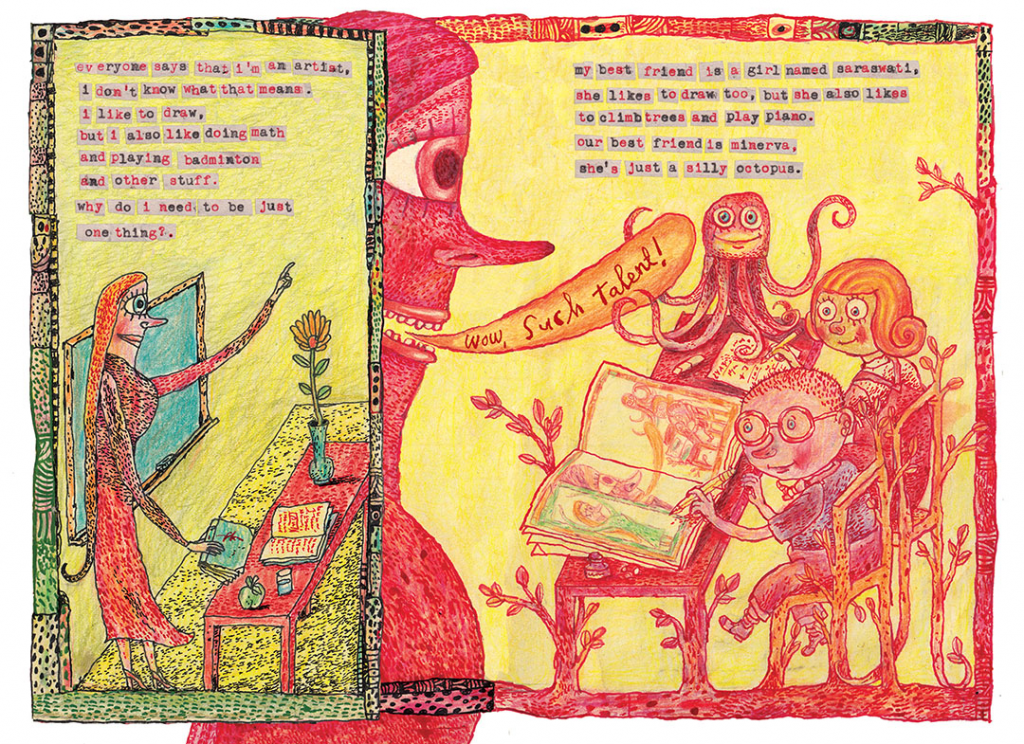 everyone says that i'm an artist,
i don't know what that means.
i like to draw,
but i also like doing math
and playing badminton
and other stuff.
why do i need to be just
one thing?.
my best friend is a girl named saraswati,
she likes to draw too, but she also likes
to climb trees and play piano.
our best friend is minerva,
she's just a silly octopus.
wow, such talent!